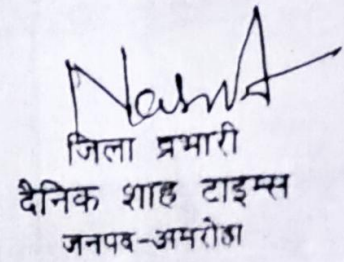 जिला प्रभारी
दैनिक शाह टाइम्स
जनपद-अमरोहा